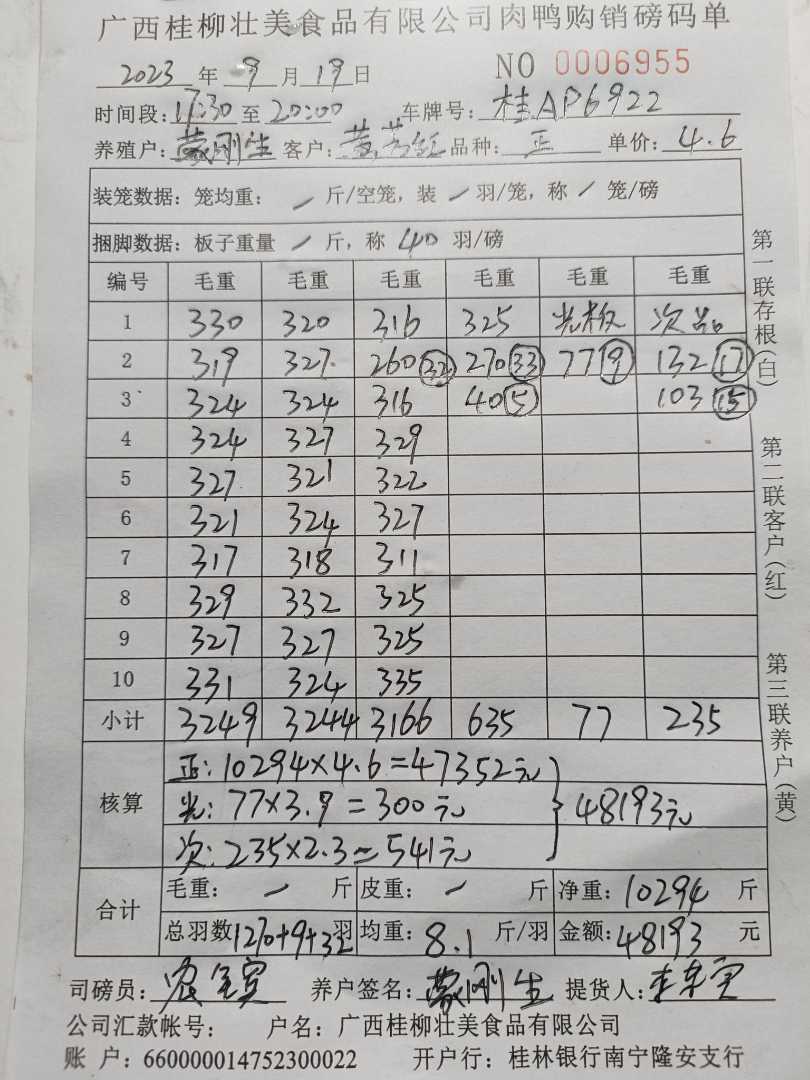 广西桂柳壮美食品有限公司肉鸭购销磅码单
2023 年 9 月 19 日 NO 0006955
时间段: 17:30 至 20:00 车牌号: 桂AP6922
养殖户: 蒙刚生 客户: 黄 品种: 正 单价: 4.6
装笼数据: 笼均重: / 斤/空笼, 装 / 羽/笼, 称 / 笼/磅
捆脚数据: 板子重量 / 斤, 称 40 羽/磅
编号 毛重 毛重 毛重 毛重 毛重 毛重
1 330 320 316 325 光板 次品
2 319 327 260 32 270 33 77 9 132 17
3 324 324 316 40 5 103 15
4 324 327 329
5 327 321 322
6 321 324 327
7 317 318 311
8 329 332 325
9 327 327 325
10 331 324 335
小计 3249 3244 3166 635 77 235
核算 正: 10294×4.6=47352元
光: 77×3.9=300元 } 48193元
次: 235×2.3=541元
合计 毛重: / 斤 皮重: / 斤 净重: 10294 斤
总羽数 1270+9+32 羽 均重: 8.1 斤/羽 金额: 48193 元
司磅员: 农 宾 养户签名: 蒙刚生 提货人:
公司汇款帐号: 户名: 广西桂柳壮美食品有限公司
账 户: 660000014752300022 开户行: 桂林银行南宁隆安支行
第一联存根(白)
第二联客户(红)
第三联养户(黄)